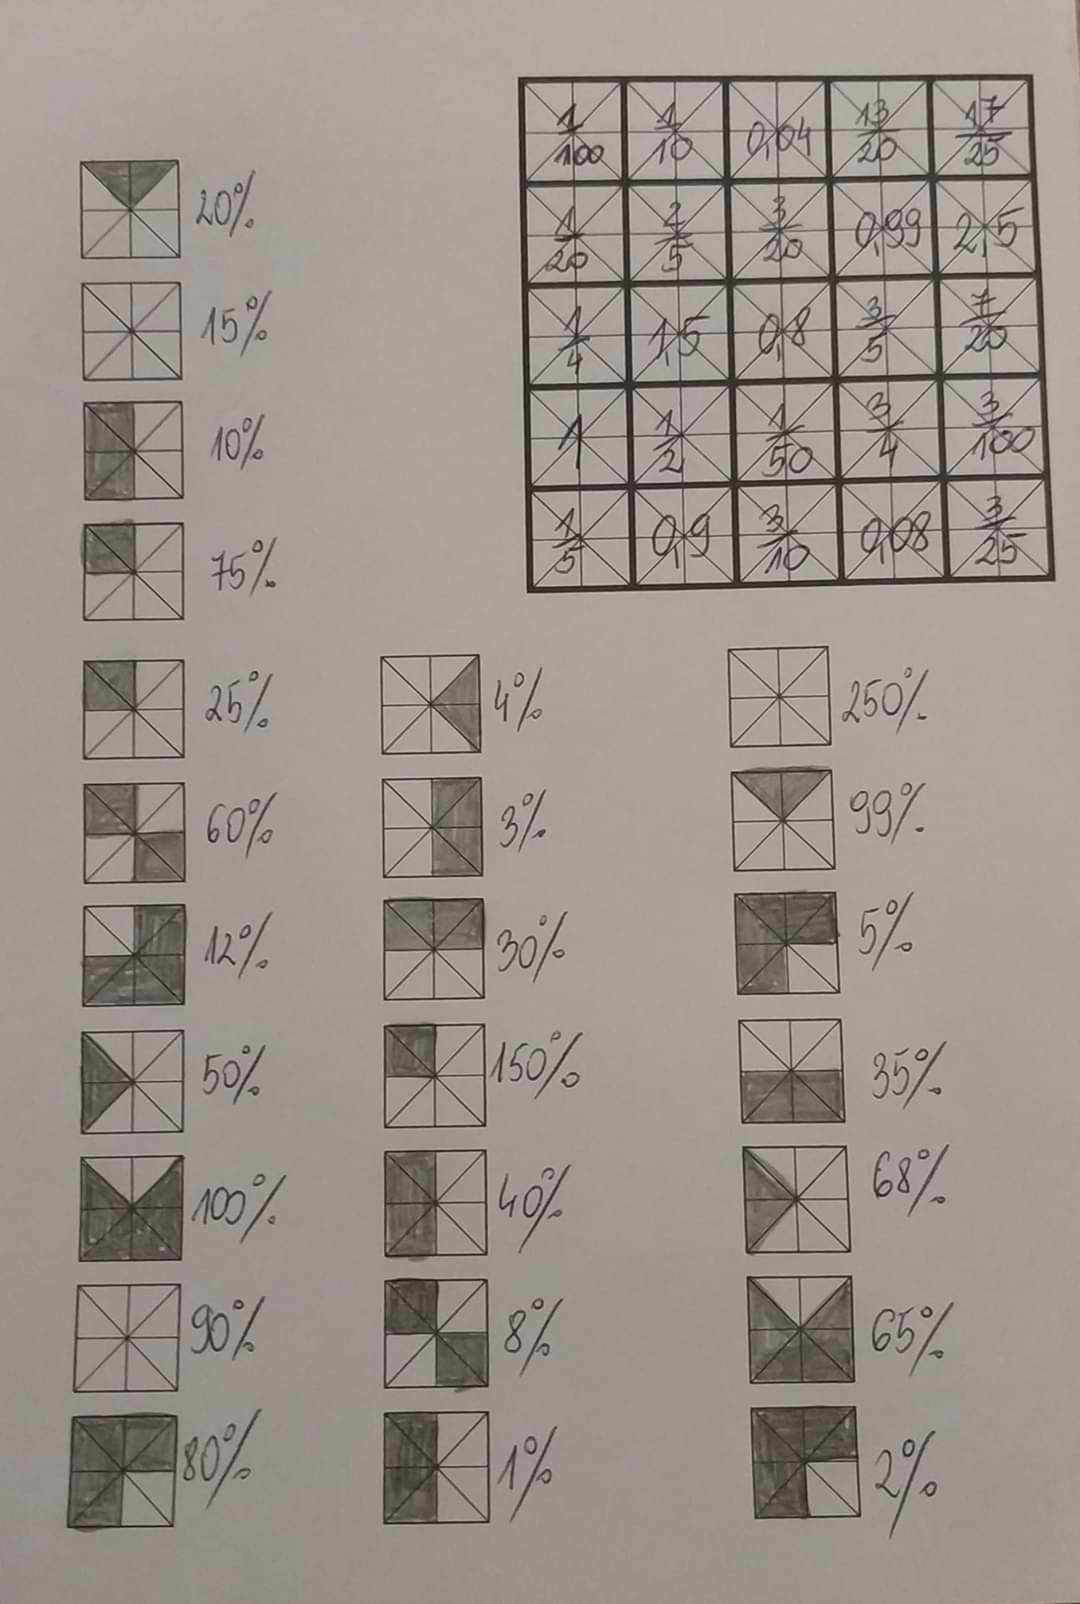 1/100 1/10 0,04 13/20 17/25
1/20 2/5 3/20 0,99 2,5
1/4 1,5 0,8 3/5 7/20
1 1/2 1/50 3/4 3/100
1/5 0,9 3/10 0,08 3/25
20%
15%
10%
75%
25%
60%
12%
50%
100%
90%
80%
4%
3%
30%
150%
40%
8%
1%
250%
99%
5%
35%
68%
65%
2%